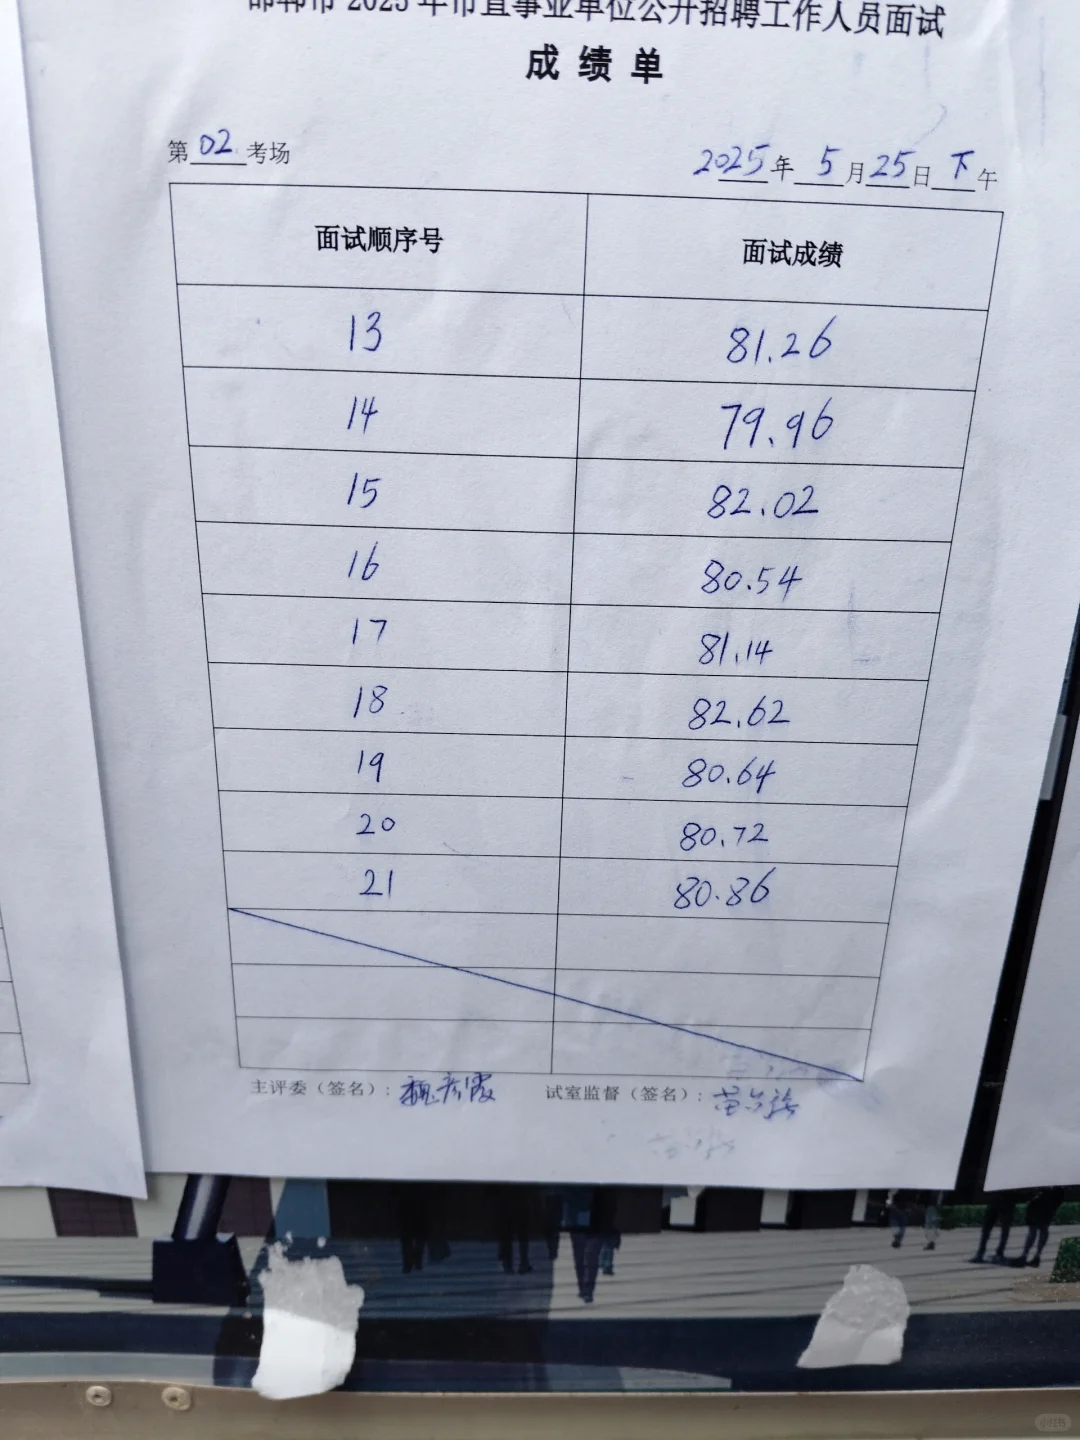 邯郸市2025年市直事业单位公开招聘工作人员面试
成绩单
第02考场 2025年5月25日下午
面试顺序号 面试成绩
13 81.26
14 79.96
15 82.02
16 80.54
17 81.14
18 82.62
19 80.64
20 80.72
21 80.86
主评委（签名）：魏彦霞 试室监督（签名）：
小红书